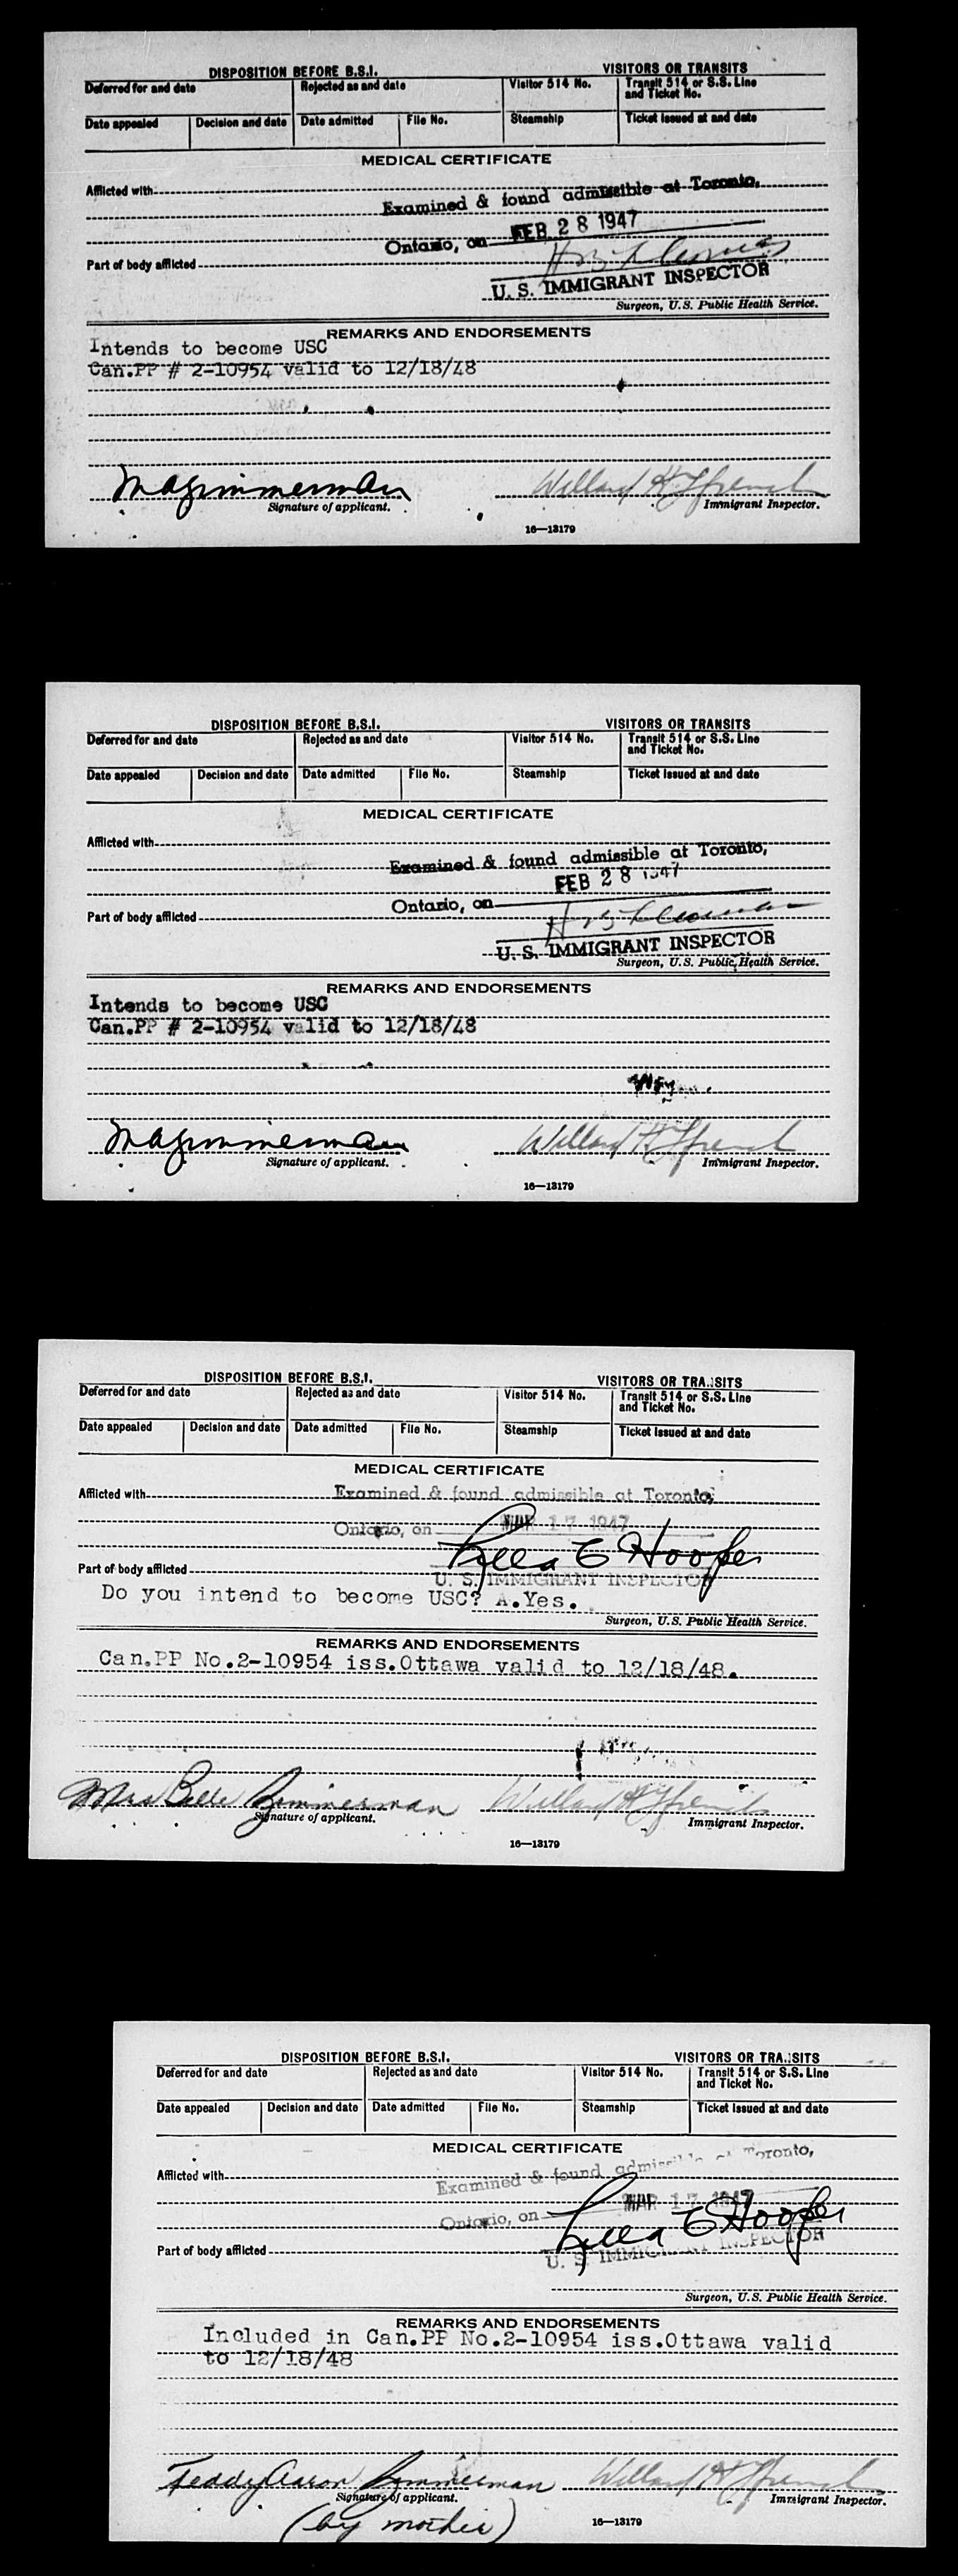 DISPOSITION BEFORE B.S.I. VISITORS OR TRANSITS
Deferred for and date Rejected as and date Visitor 514 No. Transit 514 or S.S. Line and Ticket No.
Date appealed Decision and date Date admitted File No. Steamship Ticket issued at and date
MEDICAL CERTIFICATE
Afflicted with
Examined & found admissible at Toronto,
Ontario, on FEB 28 1947
Part of body afflicted
U. S. IMMIGRANT INSPECTOR
Surgeon, U.S. Public Health Service.
REMARKS AND ENDORSEMENTS
Intends to become USC
Can.PP # 2-10954 valid to 12/18/48
MAZimmerman Willard H. French
Signature of applicant. Immigrant Inspector.
16—13179
DISPOSITION BEFORE B.S.I. VISITORS OR TRANSITS
Deferred for and date Rejected as and date Visitor 514 No. Transit 514 or S.S. Line and Ticket No.
Date appealed Decision and date Date admitted File No. Steamship Ticket issued at and date
MEDICAL CERTIFICATE
Afflicted with
Examined & found admissible at Toronto,
FEB 28 1947
Ontario, on
Part of body afflicted
U. S. IMMIGRANT INSPECTOR
Surgeon, U.S. Public Health Service.
REMARKS AND ENDORSEMENTS
Intends to become USC
Can.PP # 2-10954 valid to 12/18/48
MAZimmerman Willard H. French
Signature of applicant. Immigrant Inspector.
16—13179
DISPOSITION BEFORE B.S.I. VISITORS OR TRANSITS
Deferred for and date Rejected as and date Visitor 514 No. Transit 514 or S.S. Line and Ticket No.
Date appealed Decision and date Date admitted File No. Steamship Ticket issued at and date
MEDICAL CERTIFICATE
Afflicted with Examined & found admissible at Toronto,
Ontario, on MAR 17 1947
Part of body afflicted Lella E Hooper
U. S. IMMIGRANT INSPECTOR
Do you intend to become USC? A.Yes.
Surgeon, U.S. Public Health Service.
REMARKS AND ENDORSEMENTS
Can.PP No.2-10954 iss.Ottawa valid to 12/18/48.
Mrs Belle Zimmerman Willard H. French
Signature of applicant. Immigrant Inspector.
16—13179
DISPOSITION BEFORE B.S.I. VISITORS OR TRANSITS
Deferred for and date Rejected as and date Visitor 514 No. Transit 514 or S.S. Line and Ticket No.
Date appealed Decision and date Date admitted File No. Steamship Ticket issued at and date
MEDICAL CERTIFICATE
Afflicted with
Examined & found admissible at Toronto,
Ontario, on MAR 17 1947
Lella E Hooper
Part of body afflicted U. S. IMMIGRANT INSPECTOR
Surgeon, U.S. Public Health Service.
REMARKS AND ENDORSEMENTS
Included in Can.PP No.2-10954 iss.Ottawa valid
to 12/18/48
Teddy Aaron Zimmerman Willard H. French
Signature of applicant. Immigrant Inspector.
(by mother)
16—13179